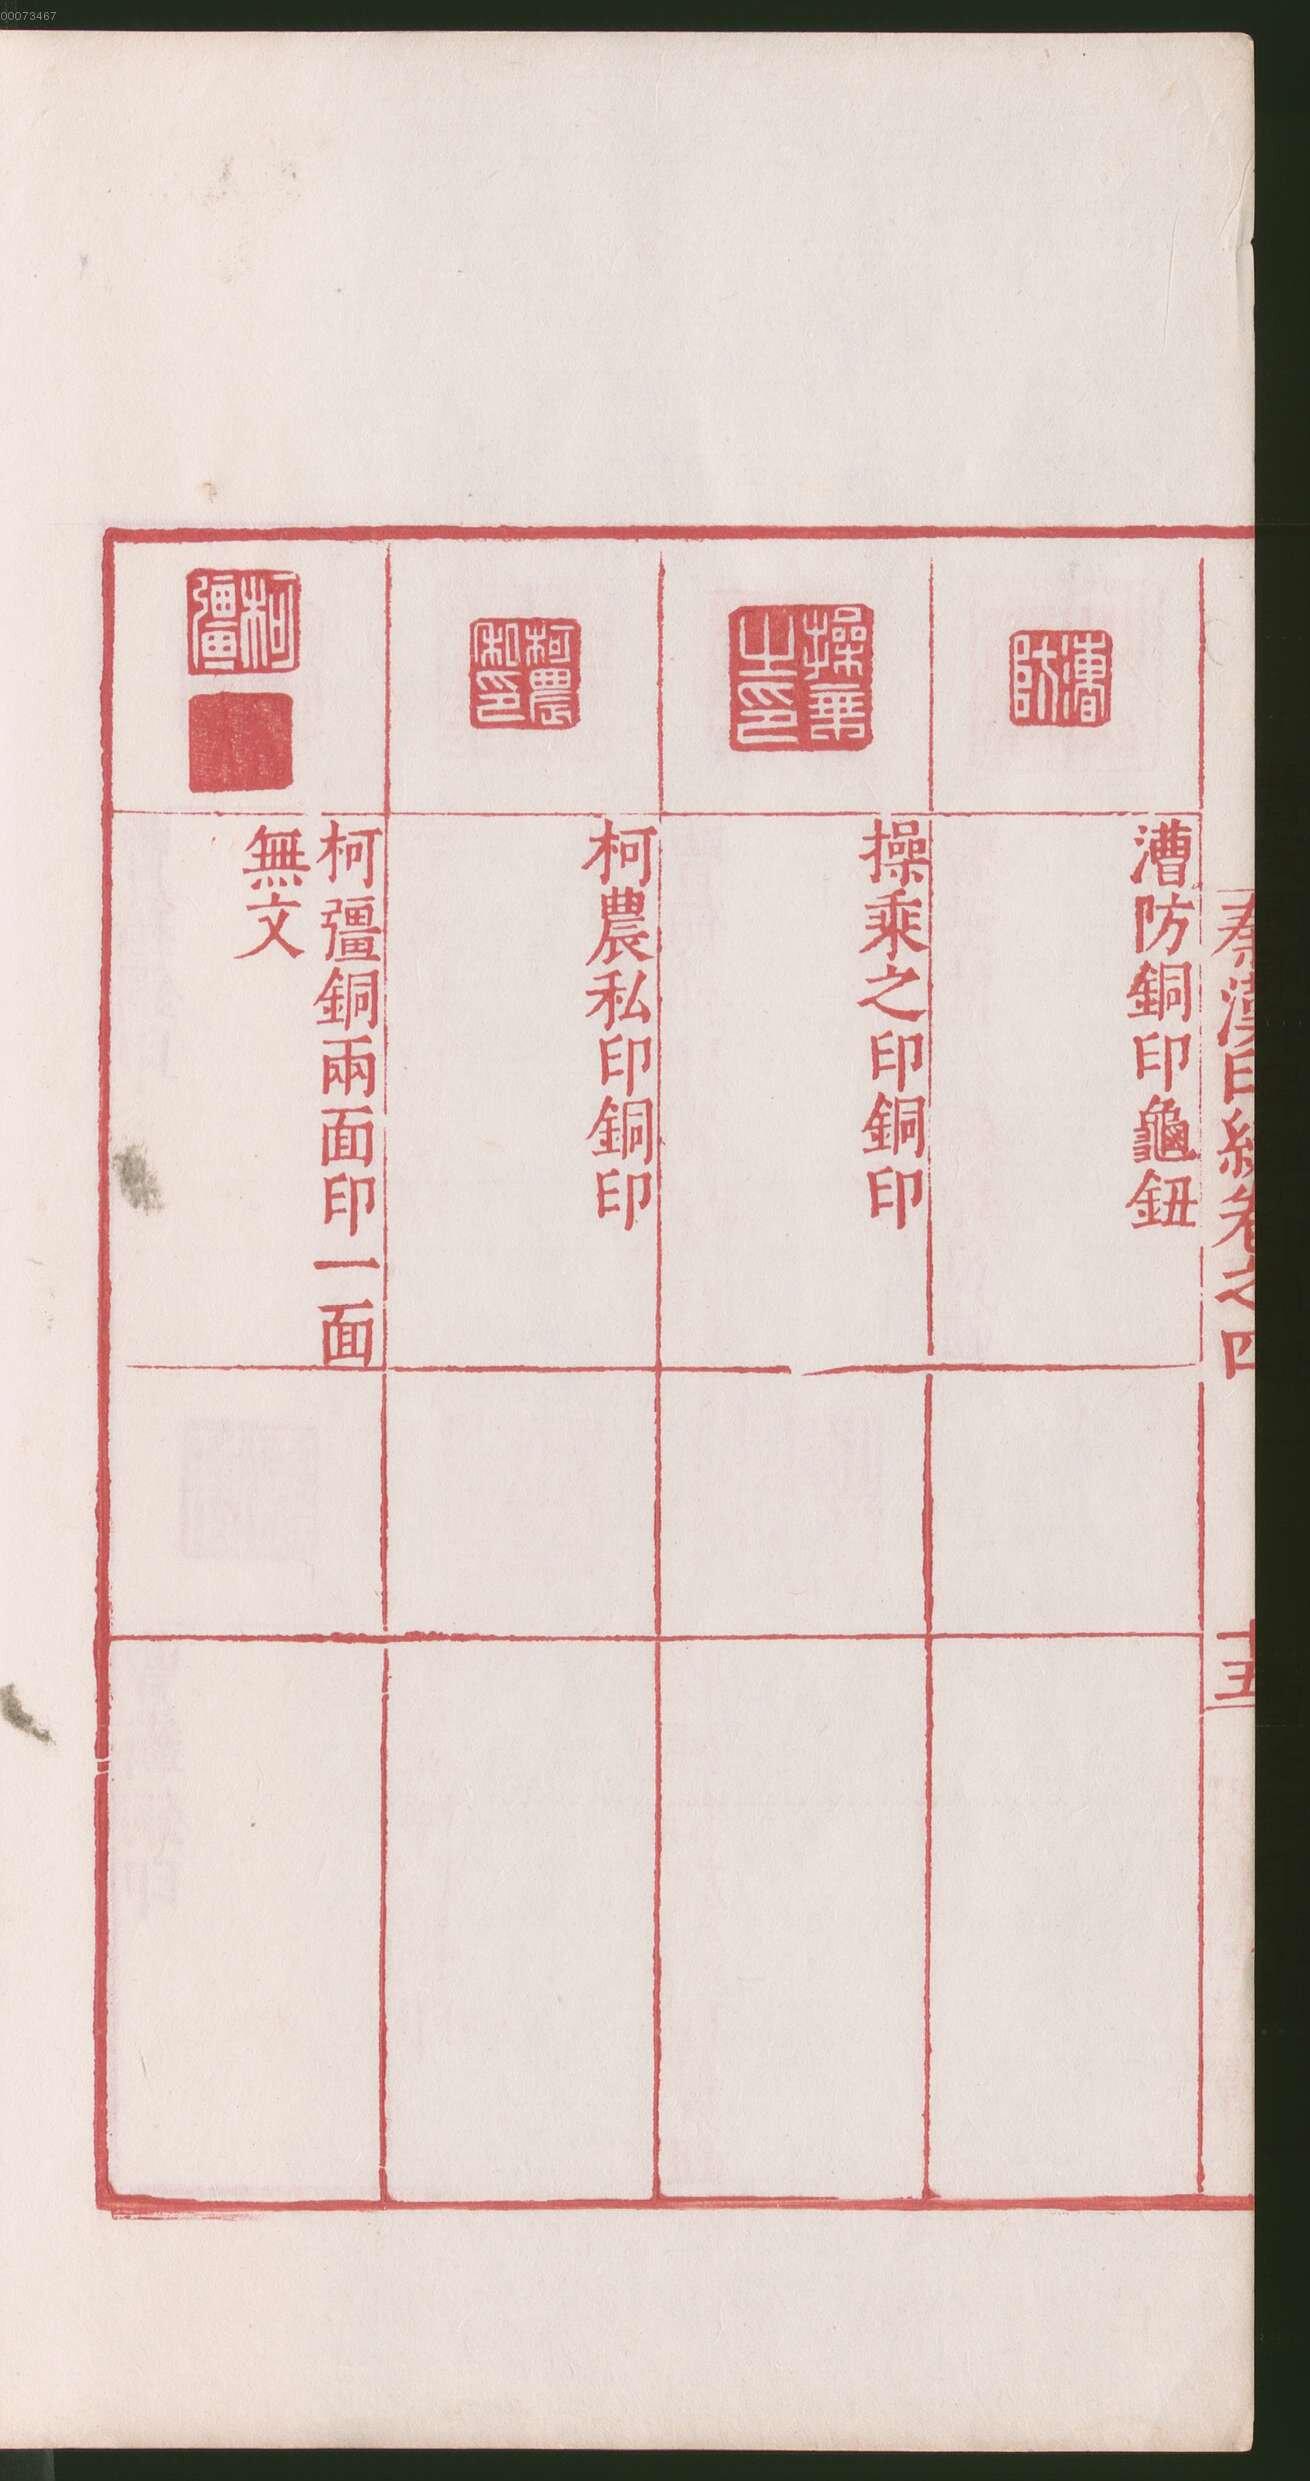 00073467
秦漢印統卷之四
十五
漕防
漕防銅印龜鈕
操乘之印
操乘之印銅印
柯農私印
柯農私印銅印
柯彊
柯彊銅兩面印一面
無文